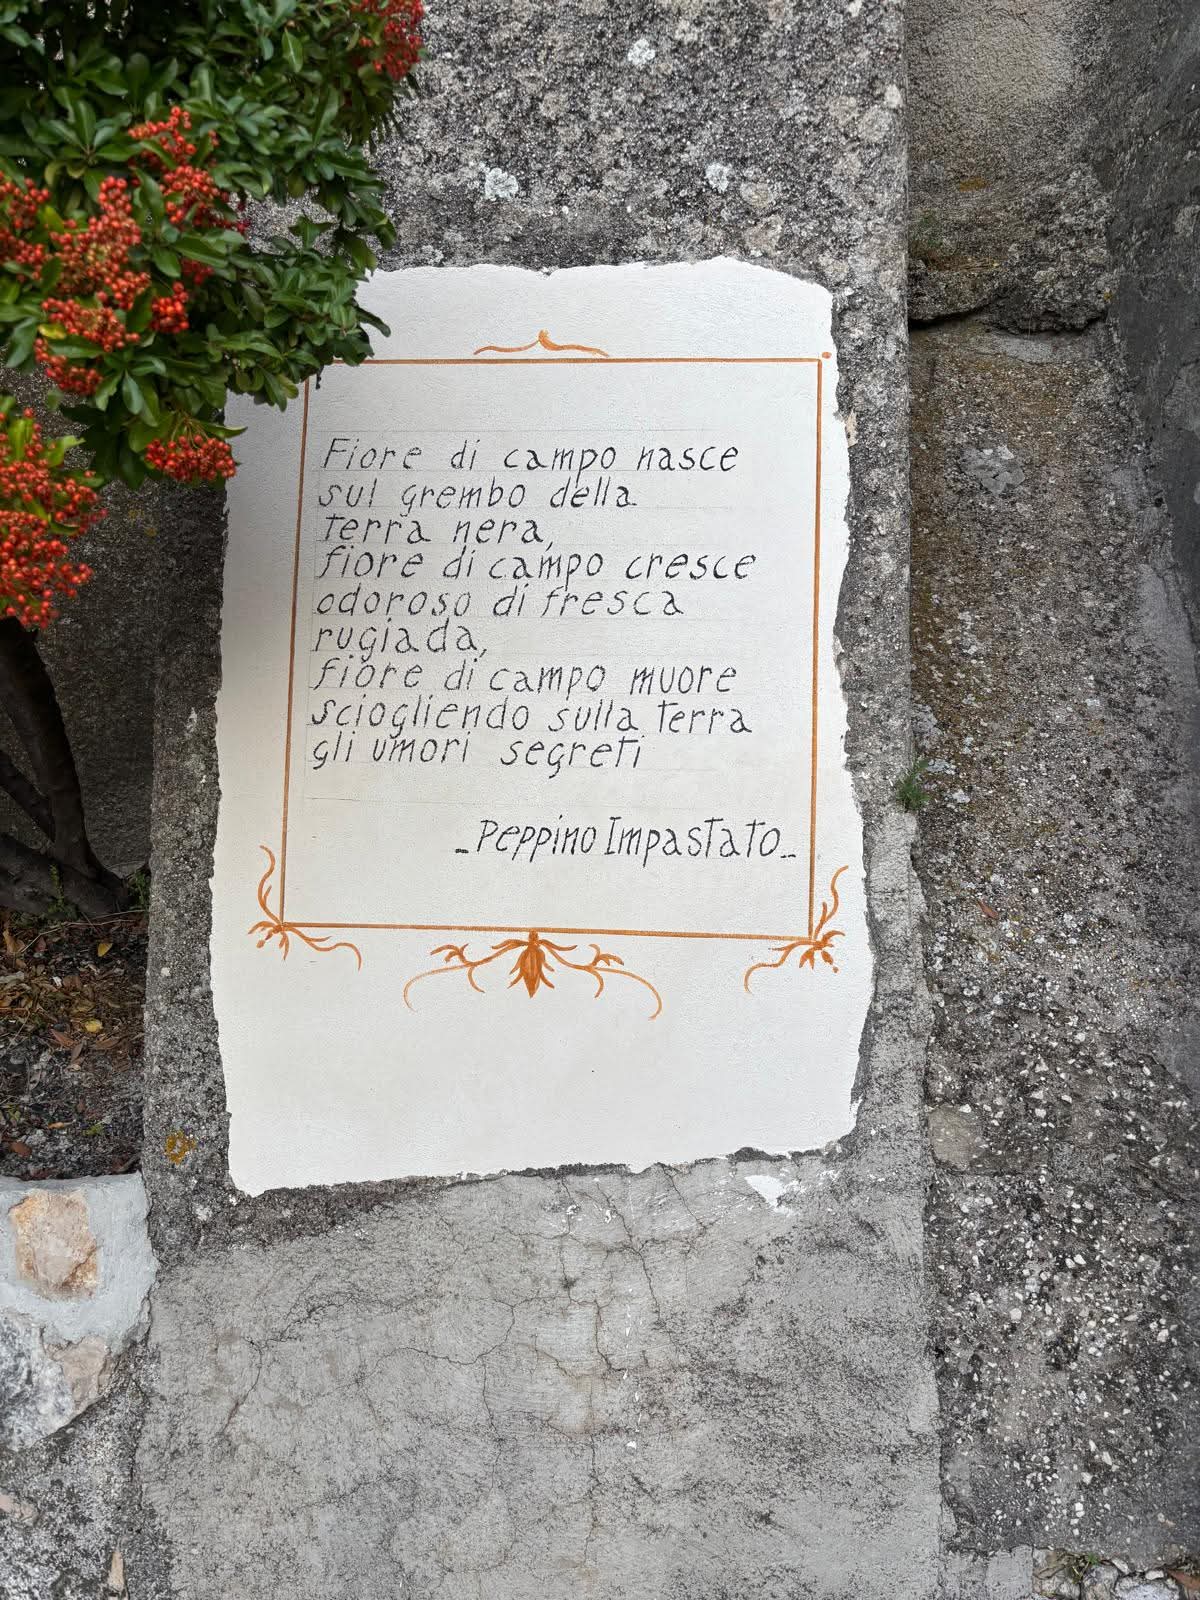 Fiore di campo nasce
sul grembo della
terra nera,
fiore di campo cresce
odoroso di fresca
rugiada,
fiore di campo muore
sciogliendo sulla terra
gli umori segreti
_Peppino Impastato_